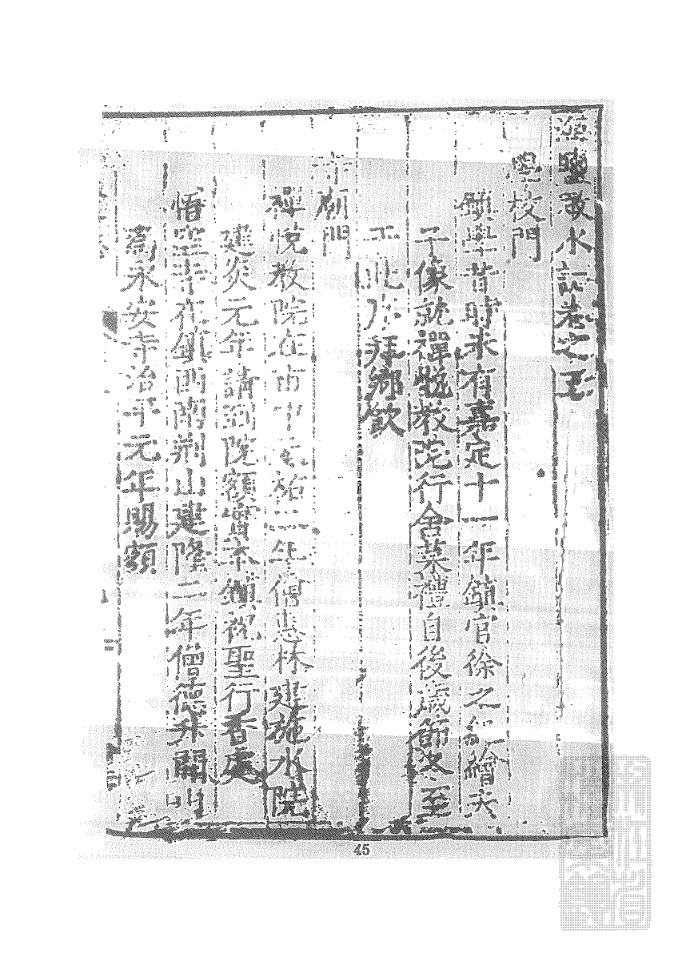 海鹽澉水志卷之五
學校門
鎮學昔時未有嘉定十一年鎮官徐之紀繪夫
子像就禪悅教院行舍菜禮自後歲節冬至
于此序拜鄉飲
寺廟門
禪悅教院在市中元祐二年僧惠林建施水院
建炎元年請到院額實本鎮祝聖行香處
悟空寺在鎮西南荊山建隆二年僧德升開山
為永安寺治平元年賜額
45